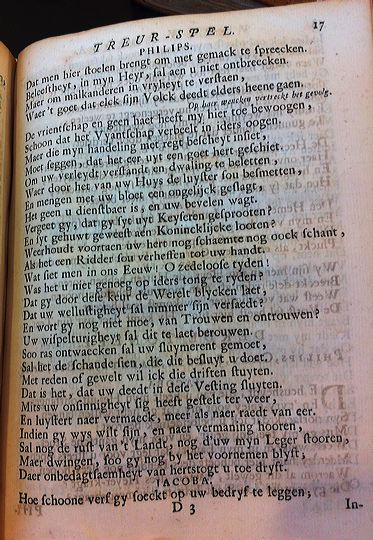 TREUR-SPEL. 17
PHILIPS.
Dat men hier stoelen brengt om met gemack te spreecken.
Beleeftheyt, in myn Heyr, sal aen u niet ontbreecken.
Maer om malkanderen in vryheyt te verstaen,
Waer 't goet dat elck sijn Volck deedt elders heene gaen.
Op haer wencken vertreckt het gevolg.
De vrientschap en geen haet heeft my hier toe bewoogen,
Schoon dat het Vyantschap verbeelt in iders oogen.
Maer die myn handeling met regt bescheyt insiet,
Moet seggen, dat het eer uyt een goet hert geschiet.
Om uw verleydt verstandt en dwaling te beletten,
Waer door het van uw Huys de luyster sou besmetten,
En mengen met uw bloet een ongelijck geslagt,
Het geen u dienstbaer is, en uw bevelen wagt.
Vergeet gy, dat gy syt uyt Keyseren gesprooten?
En syt gehuwt geweest aen Konincklijcke looten?
Weerhoudt voortaen uw hert nog schaemte nog oock schant,
Als het een Ridder sou verheffen tot uw handt.
Wat siet men in ons Eeuw! O zedeloose tyden!
Was het u niet genoeg op iders tong te ryden?
Dat gy door dese keur de Werelt blycken laet,
Dat uw wellustigheyt sal nimmer sijn versaedt?
En wort gy nog niet moe, van Trouwen en ontrouwen?
Uw wispelturigheyt sal dit te laet berouwen.
Soo ras ontwaecken sal uw sluymerent gemoet,
Sal het de schande sien, die dit besluyt u doet.
Met reden of gewelt wil ick die driften stuyten.
Dat is het, dat uw deedt in dese Vesting sluyten,
Mits uw onsinnigheyt sig heeft gestelt ter weer,
En luystert naer vermaeck, meer als naer raedt van eer.
Indien gy wys wilt sijn, en naer vermaning hooren,
Sal nog de rust van 't Landt, nog d'uw myn Leger stooren,
Maer dwingen, soo gy nog by het voornemen blyft,
Daer onbedagtsaemheyt van hertstogt u toe dryft.
JACOBA.
Hoe schoone verf gy soeckt op uw bedryf te leggen,
D 3 In-